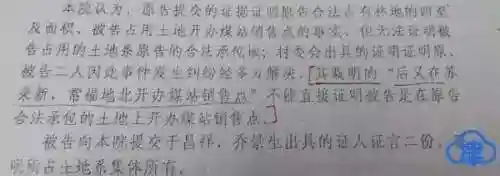 本院认为，原告提交的证据证明原告合法占有林地的四至
及面积、被告占用土地开办煤站销售点的事实，但无法证明被
告占用的土地系原告的合法承包地；村委会出具的证明证明原、
被告二人因此事件发生纠纷经多方解决，[其载明的“后又在苏
来新、常福地北开办煤站销售点”不能直接证明被告是在原告
合法承包的土地上开办煤站销售点。]
被告向本院提交于昌祥、乔崇生出具的证人证言二份，
院所占土地系集体所有。